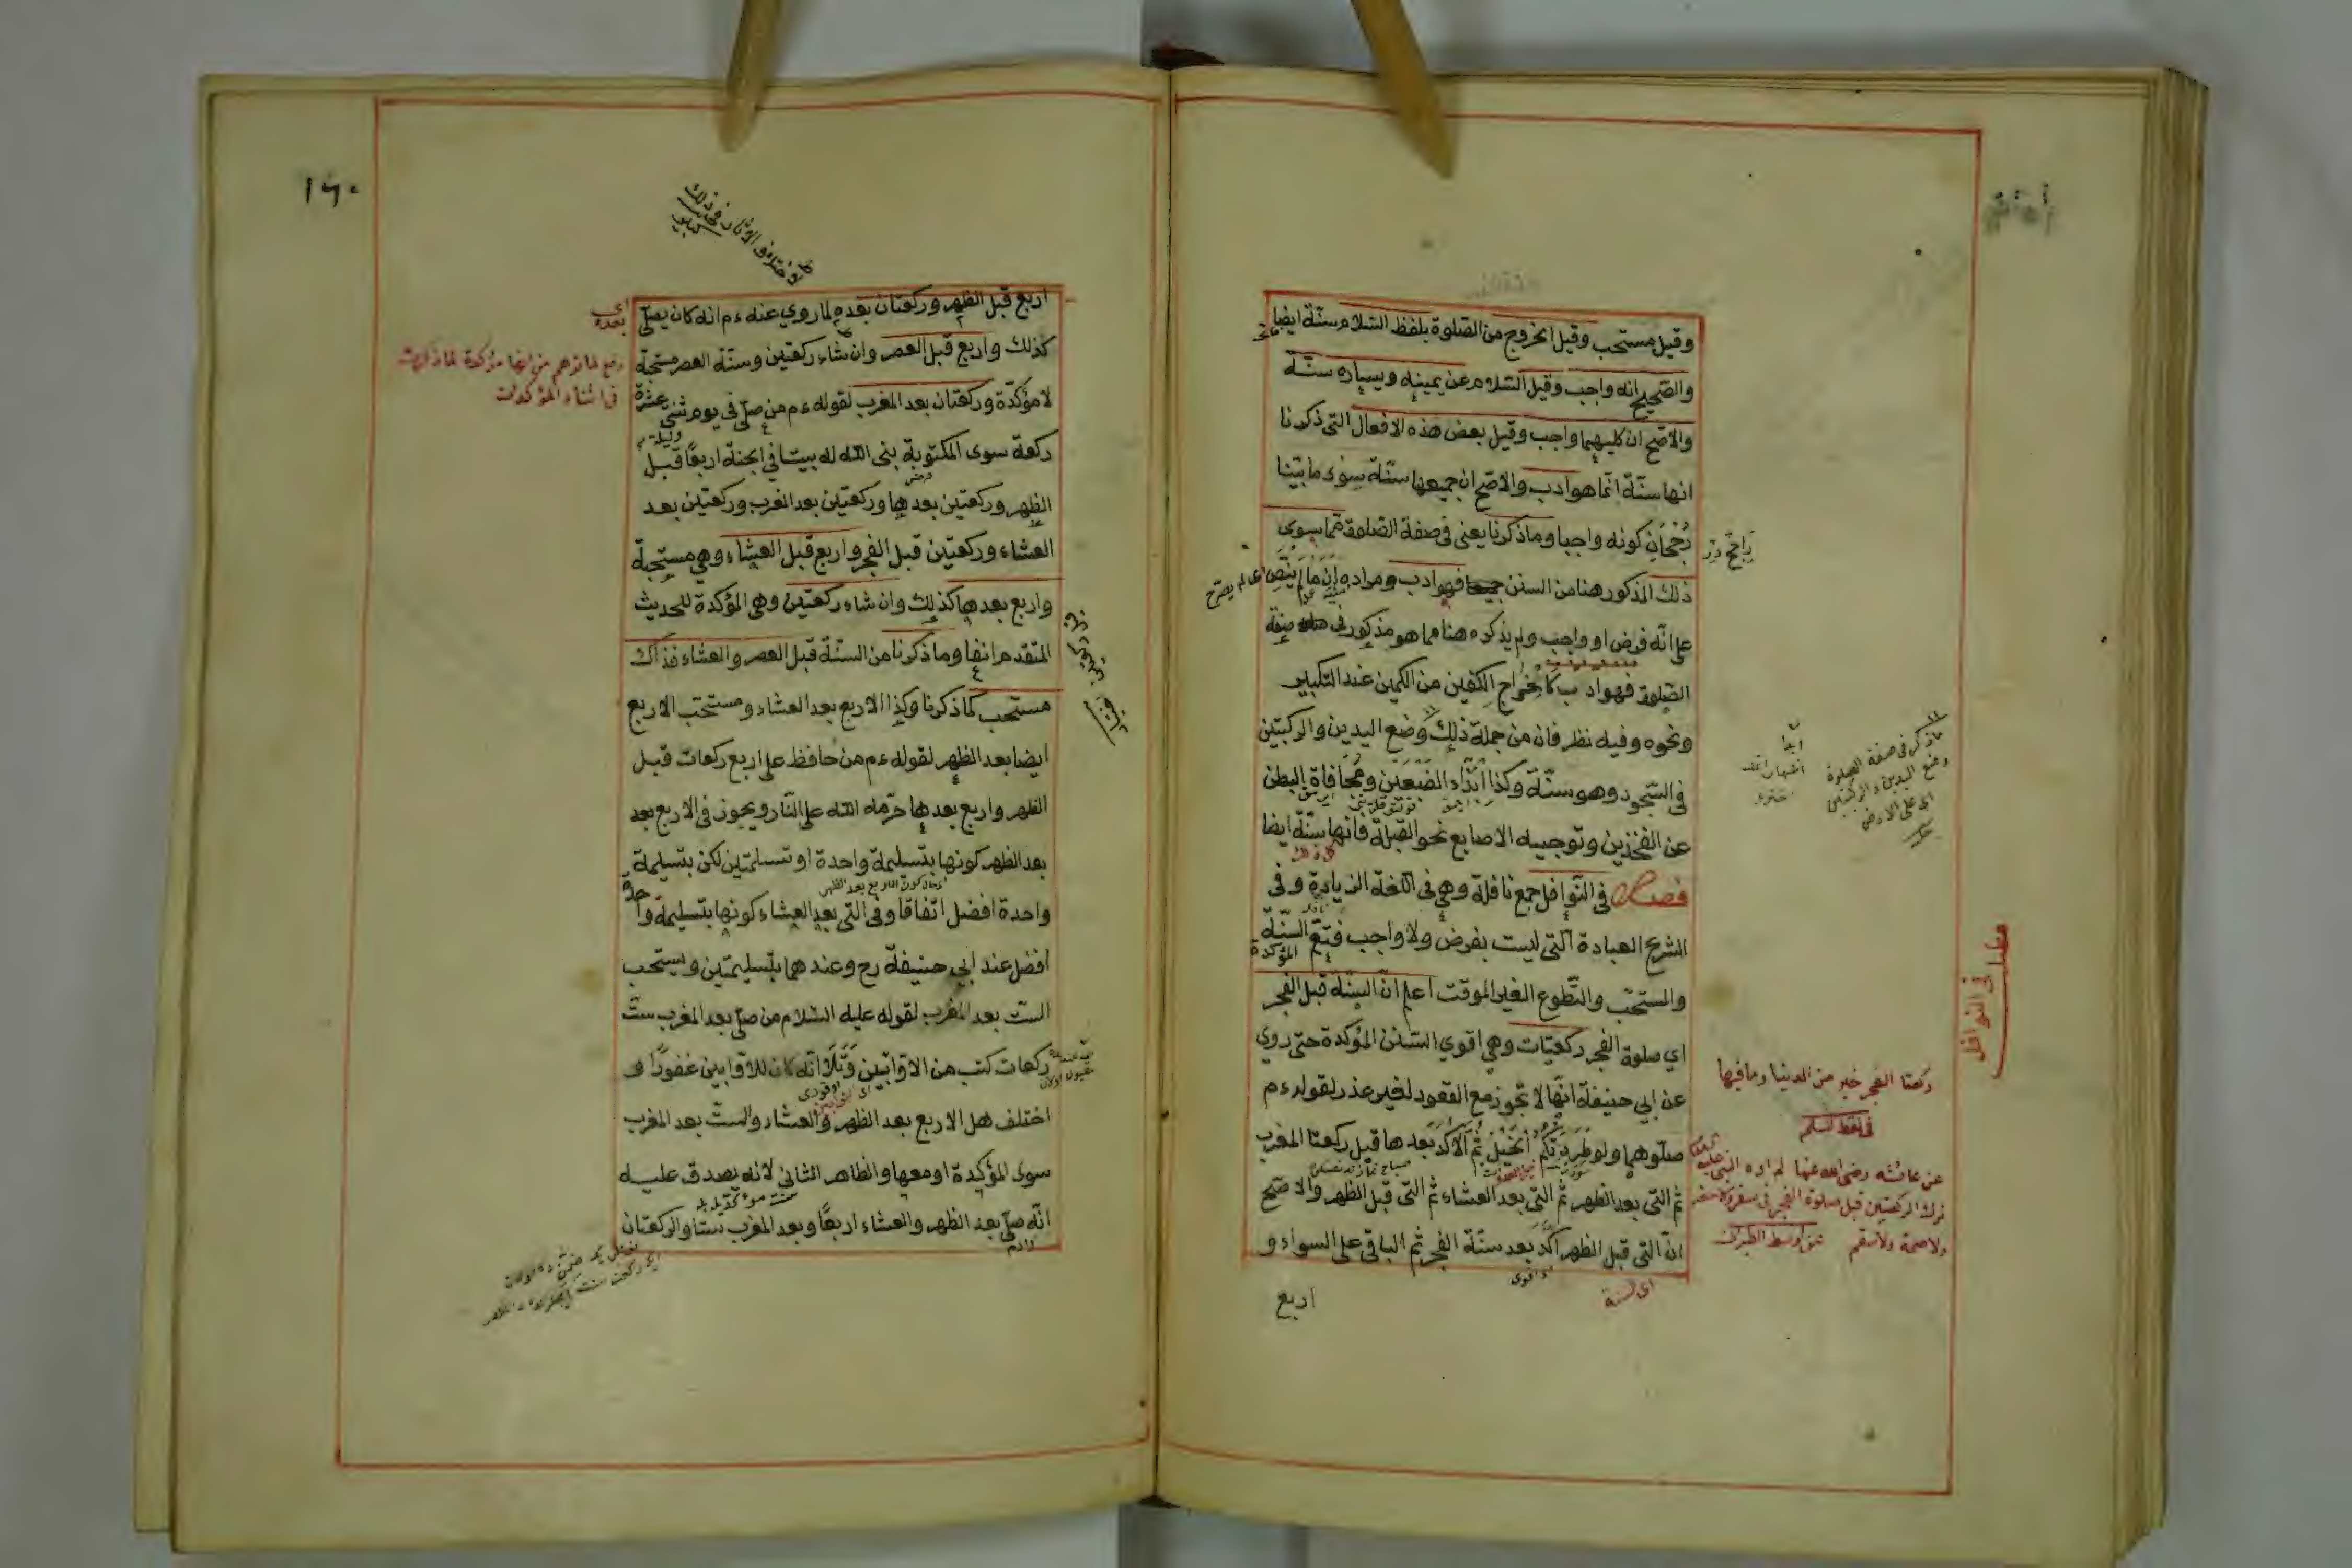 وقيل مستحب وقيل الخروج من الصلوة بلفظ السلام سنّة ايضا
والصّحيح انه واجب وقيل السّلام عن يمينه ويساره سنّة
والاصّح ان كليهما واجب وقيل بعض هذه الافعال التى ذكرنا
انها سنّة انّما هو ادب والاصّح ان جميعها سنّة سوى ما بيّنا
رُجْحَان كونه واجبا وما ذكرنا يعنى فى صفة الصّلوة ممّا سوى
ذلك المذكور هنا من السنن فهو ادب ومراده ان ما لم ينصّ
على انّه فرض او واجب ولم يذكره هنا مما هو مذكور فى صفة
الصّلوة فهو ادب كاخراج الكفين من الكمين عند التكبير
ونحوه وفيه نظر فان من جملة ذلك وضع اليدين والركبتين
فى السّجود وهو سنّة وكذا ابداء الضّبْعَين ومُجافاة البطن
عن الفخذين وتوجيه الاصابع نحو القبلة فانها سنّة ايضا
فصل فى النّوافل جمع نافلة وهى فى اللغة الزيادة وفى
الشرع العبادة التى ليست بفرض ولا واجب فتعّم السنّة المؤكدة
والمستحّب والتّطوع الغير الموقت اعلم انّ السنّة قبل الفجر
اي صلوة الفجر ركعتان وهى اقوي السّنن المؤكدة حتى روي
عن ابى حنيفة انّها لا تجوز مع القعود لغير عذر لقوله ءم
صلّوهما ولو طَرَدَتْكم الخَيْل ثمّ الآكد بَعدها قيل ركعتا المغرب
ثم التى بعد الظهر ثم التى بعد العشاء ثم التى قبل الظهر والاصّح
انّ التى قبل الظهر آكد بعد سنّة الفجر ثم الباقى على السواء و
اربع
مطلب فى النوافل
ركعتا الفجر خير من الدنيا وما فيها
عن عائشة رضى الله عنها لم اره النبى
ترك الركعتين قبل صلوة الفجر فى سفر ولا حضر
ولا صحة ولا سقم
ما ذكر فى صفة الصلوة
وضع اليدين والركبتين
على الارض
١٦٠
اربع قبل الظهر وركعتان بعده لما روي عنه ءم انه كان يصلّى
كذلك واربع قبل العصر وان شاء ركعتين وسنّة العصر مستحبة
لا مؤكدّة وركعتان بعد المغرب لقوله ءم من صلّى فى يوم ثنتى عشرة
ركعة سوى المكتوبة بنى الله له بيتا فى الجنّة اربعًا قبل
الظهر وركعتين بعدها وركعتين بعد المغرب وركعتين بعد
العشاء وركعتين قبل الفجر واربع قبل العشاء وهى مستحبة
واربع بعدها كذلك وان شاء ركعتين وهى المؤكدة للحديث
المتقدم انفا وما ذكرنا من السنّة قبل العصر والعشاء فذاك
مستحب كما ذكرنا وكذا الاربع بعد العشاء ومستحّب الاربع
ايضا بعد الظهر لقوله ءم من حافظ على اربع ركعات قبل
الظهر واربع بعدها حرّمه الله على النّار ويجوز فى الاربع بعد
بعد الظهر كونها بتسليمة واحدة او تسلمتين لكن بتسليمة
واحدة افضل اتّفاقا وفى التى بعد العشاء كونها بتسليمة واحدة
افضل عند ابي حنيفة رح وعندهما بتسليمتين ويستحب
الستّ بعد المغرب لقوله عليه السّلام من صلّى بعد المغرب ستّ
ركعات كتب من الاوّابين وَتَلَا انّه كان للاوّابين غفورًا و
اختلف هل الاربع بعد الظهر والعشاء والستّ بعد المغرب
سوى المؤكدة او معها والظاهر الثانى لانه يصدق عليه
انّه صلّى بعد الظهر والعشاء اربعًا وبعد المغرب ستا والركعتان
اى بعده
دفع لما توهم من انها مؤكدة لما ذكرت
فى اثناء المؤكدات